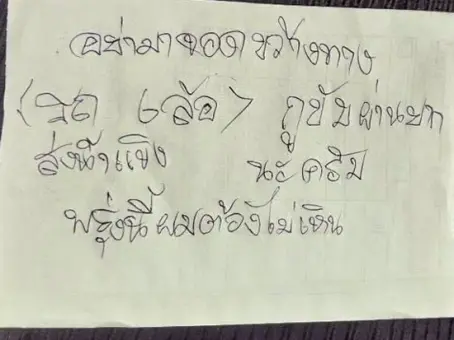 อย่ามาจอดขวางทาง
(รถ 6 ล้อ) กูขับผ่านยาก
ส่งน้ำแข็ง นะครับ
พรุ่งนี้ผมต้องไม่เห็น